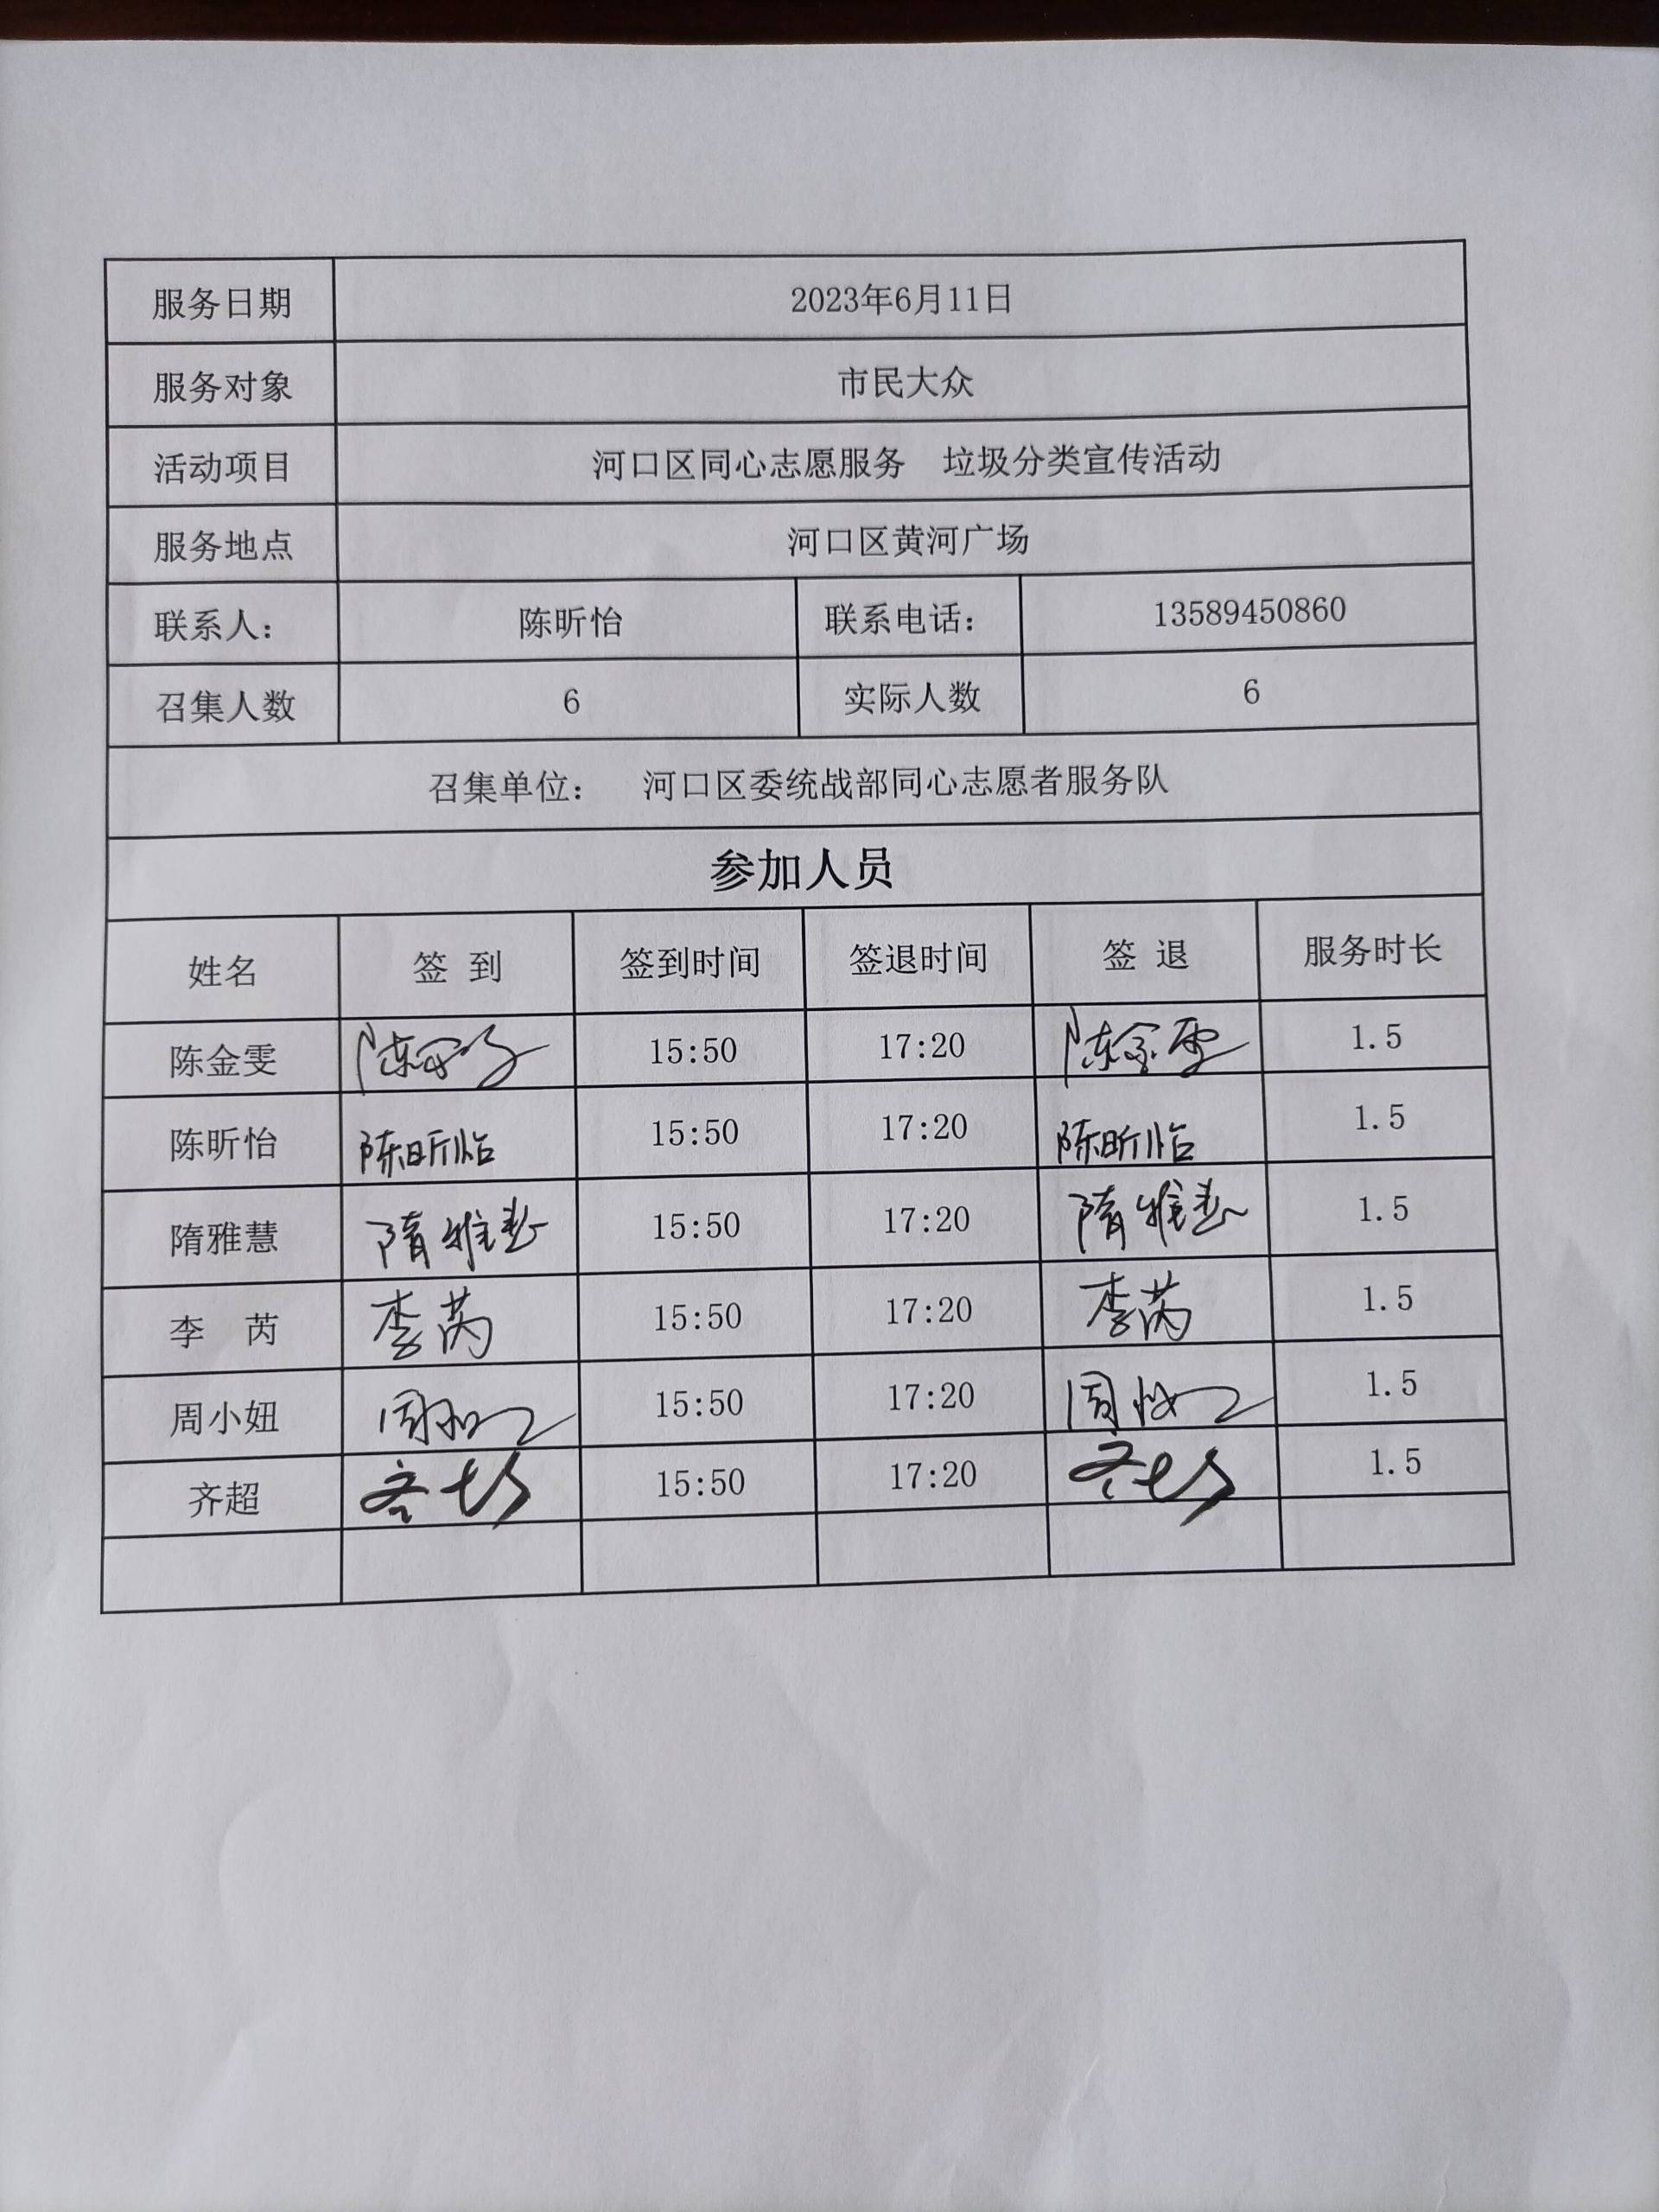 服务日期 2023年6月11日
服务对象 市民大众
活动项目 河口区同心志愿服务 垃圾分类宣传活动
服务地点 河口区黄河广场
联系人： 陈昕怡 联系电话： 13589450860
召集人数 6 实际人数 6
召集单位： 河口区委统战部同心志愿者服务队
参加人员
姓名 签 到 签到时间 签退时间 签 退 服务时长
陈金雯 15:50 17:20 陈金雯 1.5
陈昕怡 陈昕怡 15:50 17:20 陈昕怡 1.5
隋雅慧 隋雅慧 15:50 17:20 隋雅慧 1.5
李 芮 李芮 15:50 17:20 李芮 1.5
周小妞 15:50 17:20 1.5
齐超 齐超 15:50 17:20 齐超 1.5